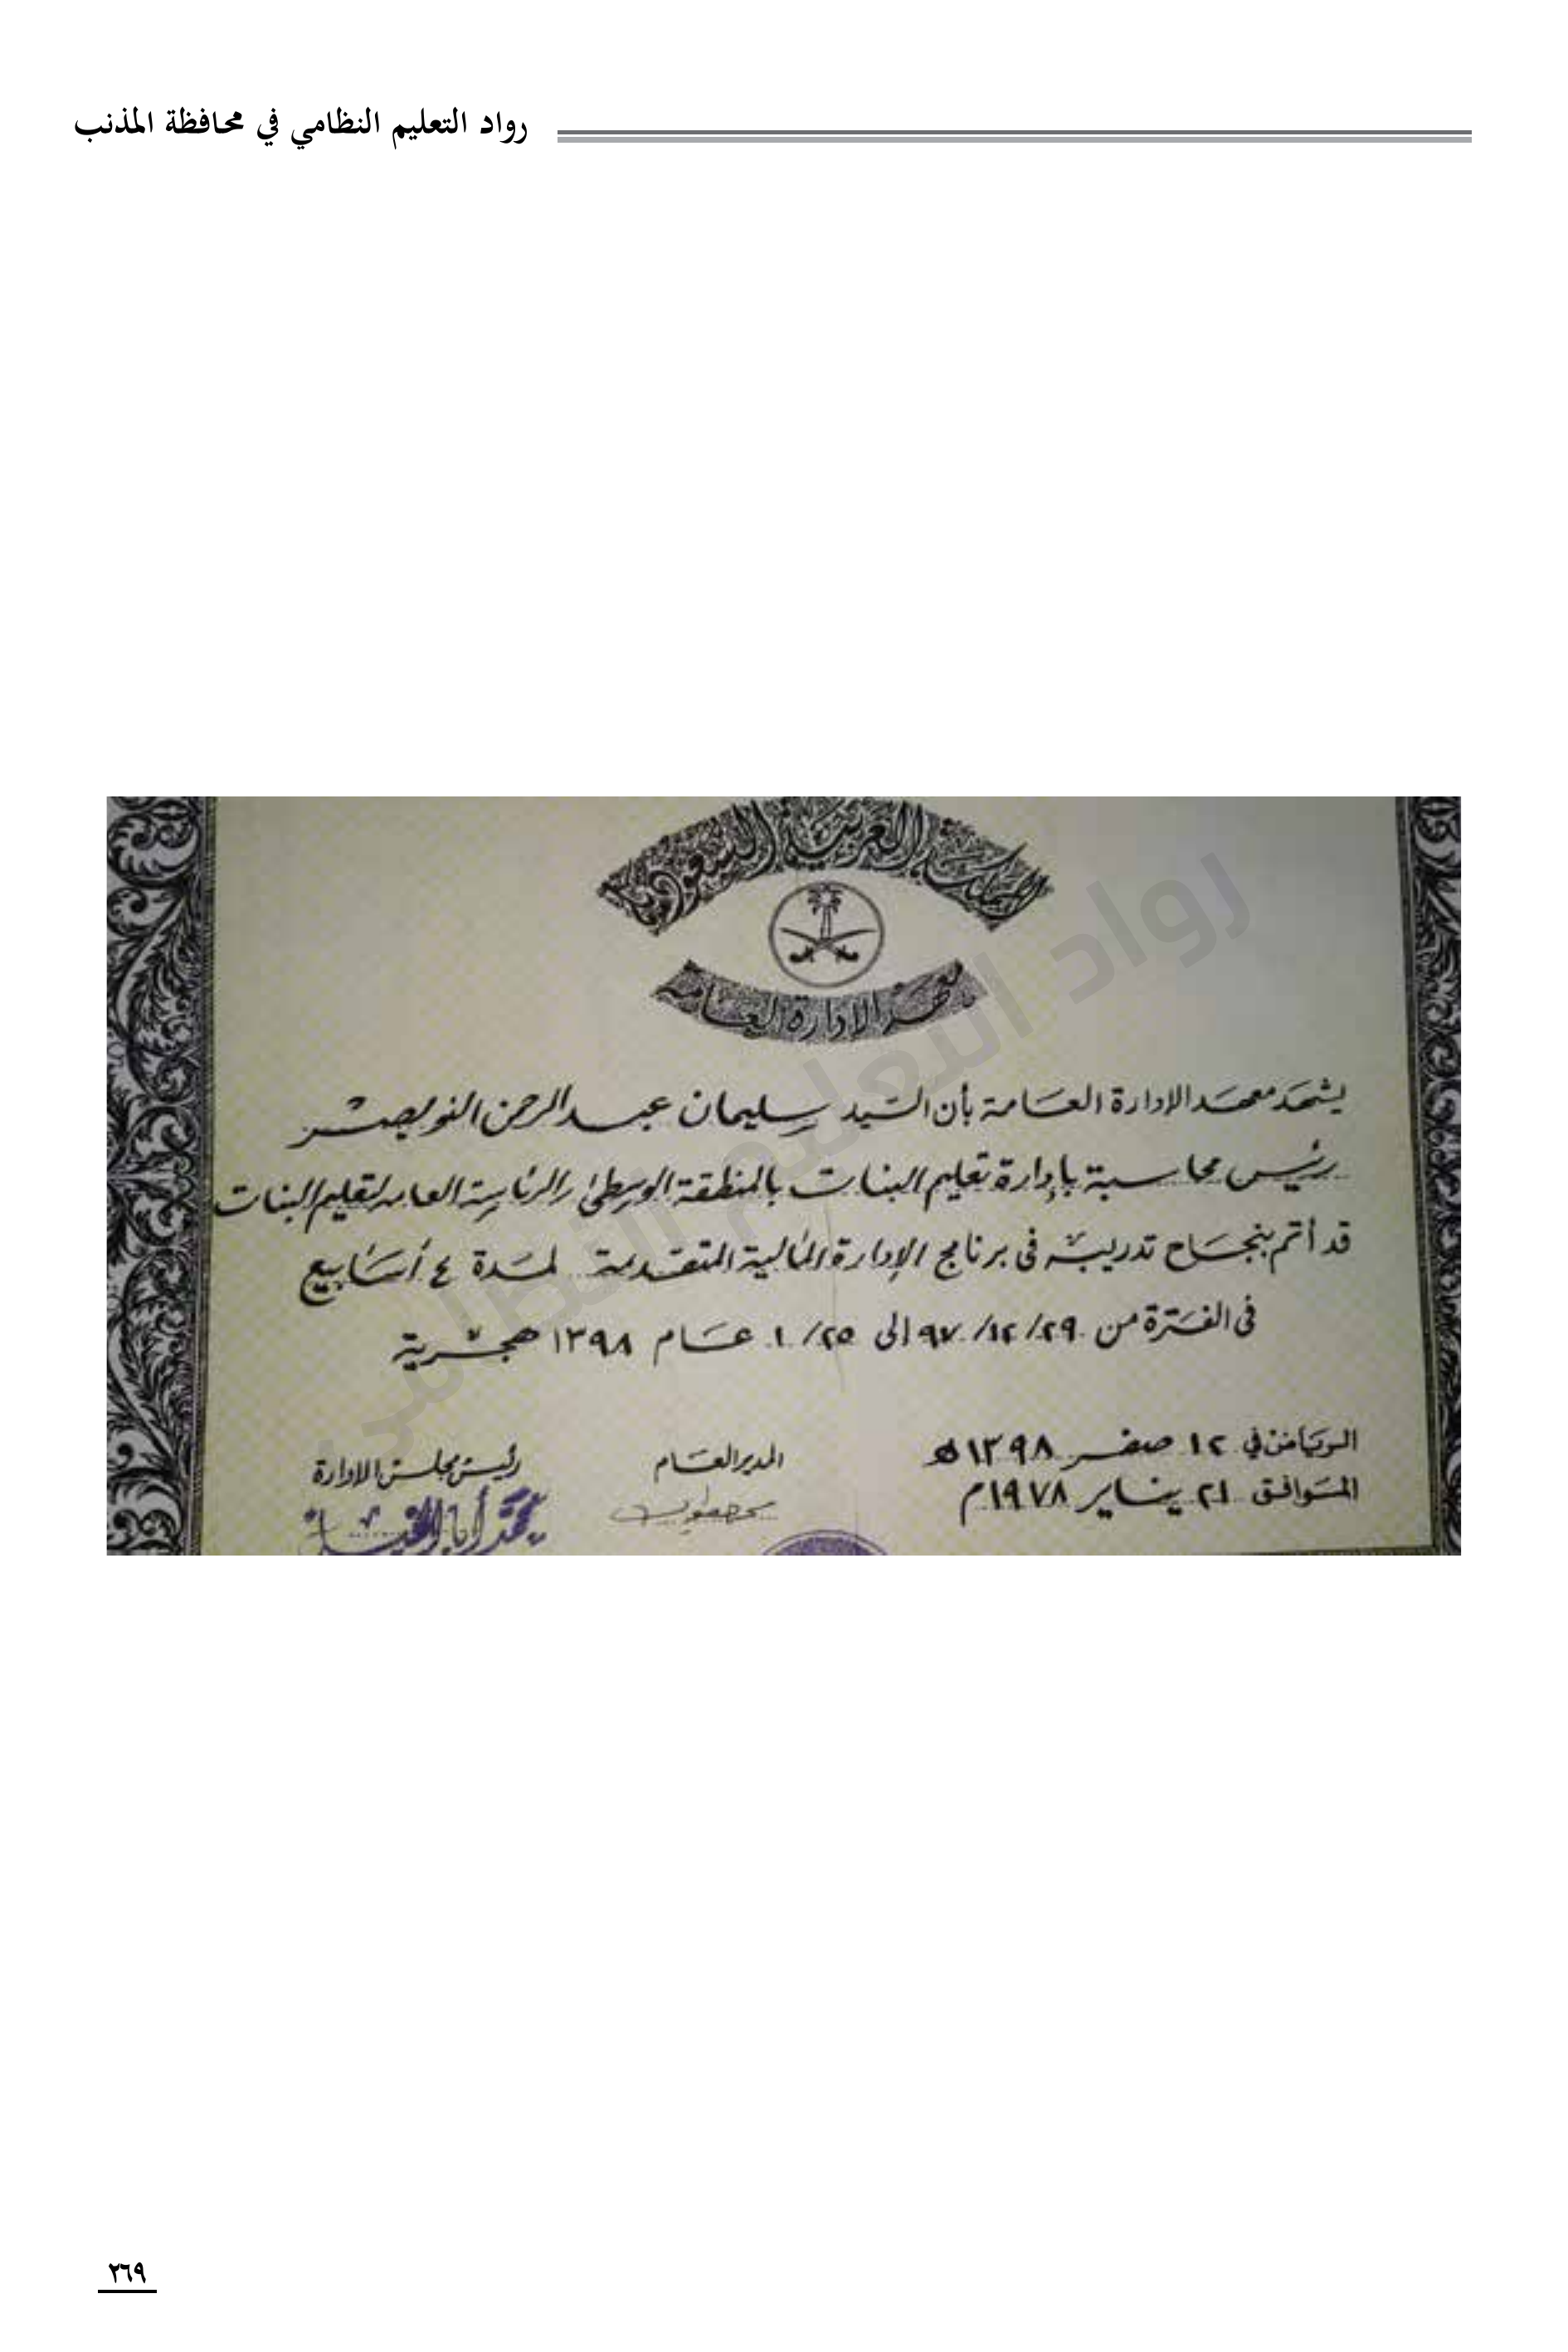 رواد التعليم النظامي في محافظة المذنب
المملكة العربية السعودية
معهد الإدارة العامة
يشهد معهد الإدارة العامة بأن السيد سليمان عبد الرحمن النويصر
رئيس محاسبة بإدارة تعليم البنات بالمنطقة الوسطى / الرئاسة العامه لتعليم البنات
قد أتم بنجاح تدريبه في برنامج الإدارة المالية المتقدمة لمدة ٤ أسابيع
في الفترة من ٢٩/ ١٢/ ٩٧ إلى ٢٥/ ١ عام ١٣٩٨ هجرية
الرياض في ١٢ صفر ١٣٩٨ هـ
الموافق ٢١ يناير ١٩٧٨م
المدير العام
رئيس مجلس الادارة
محمد أبا الخيل
رواد التعليم
٢٦٩